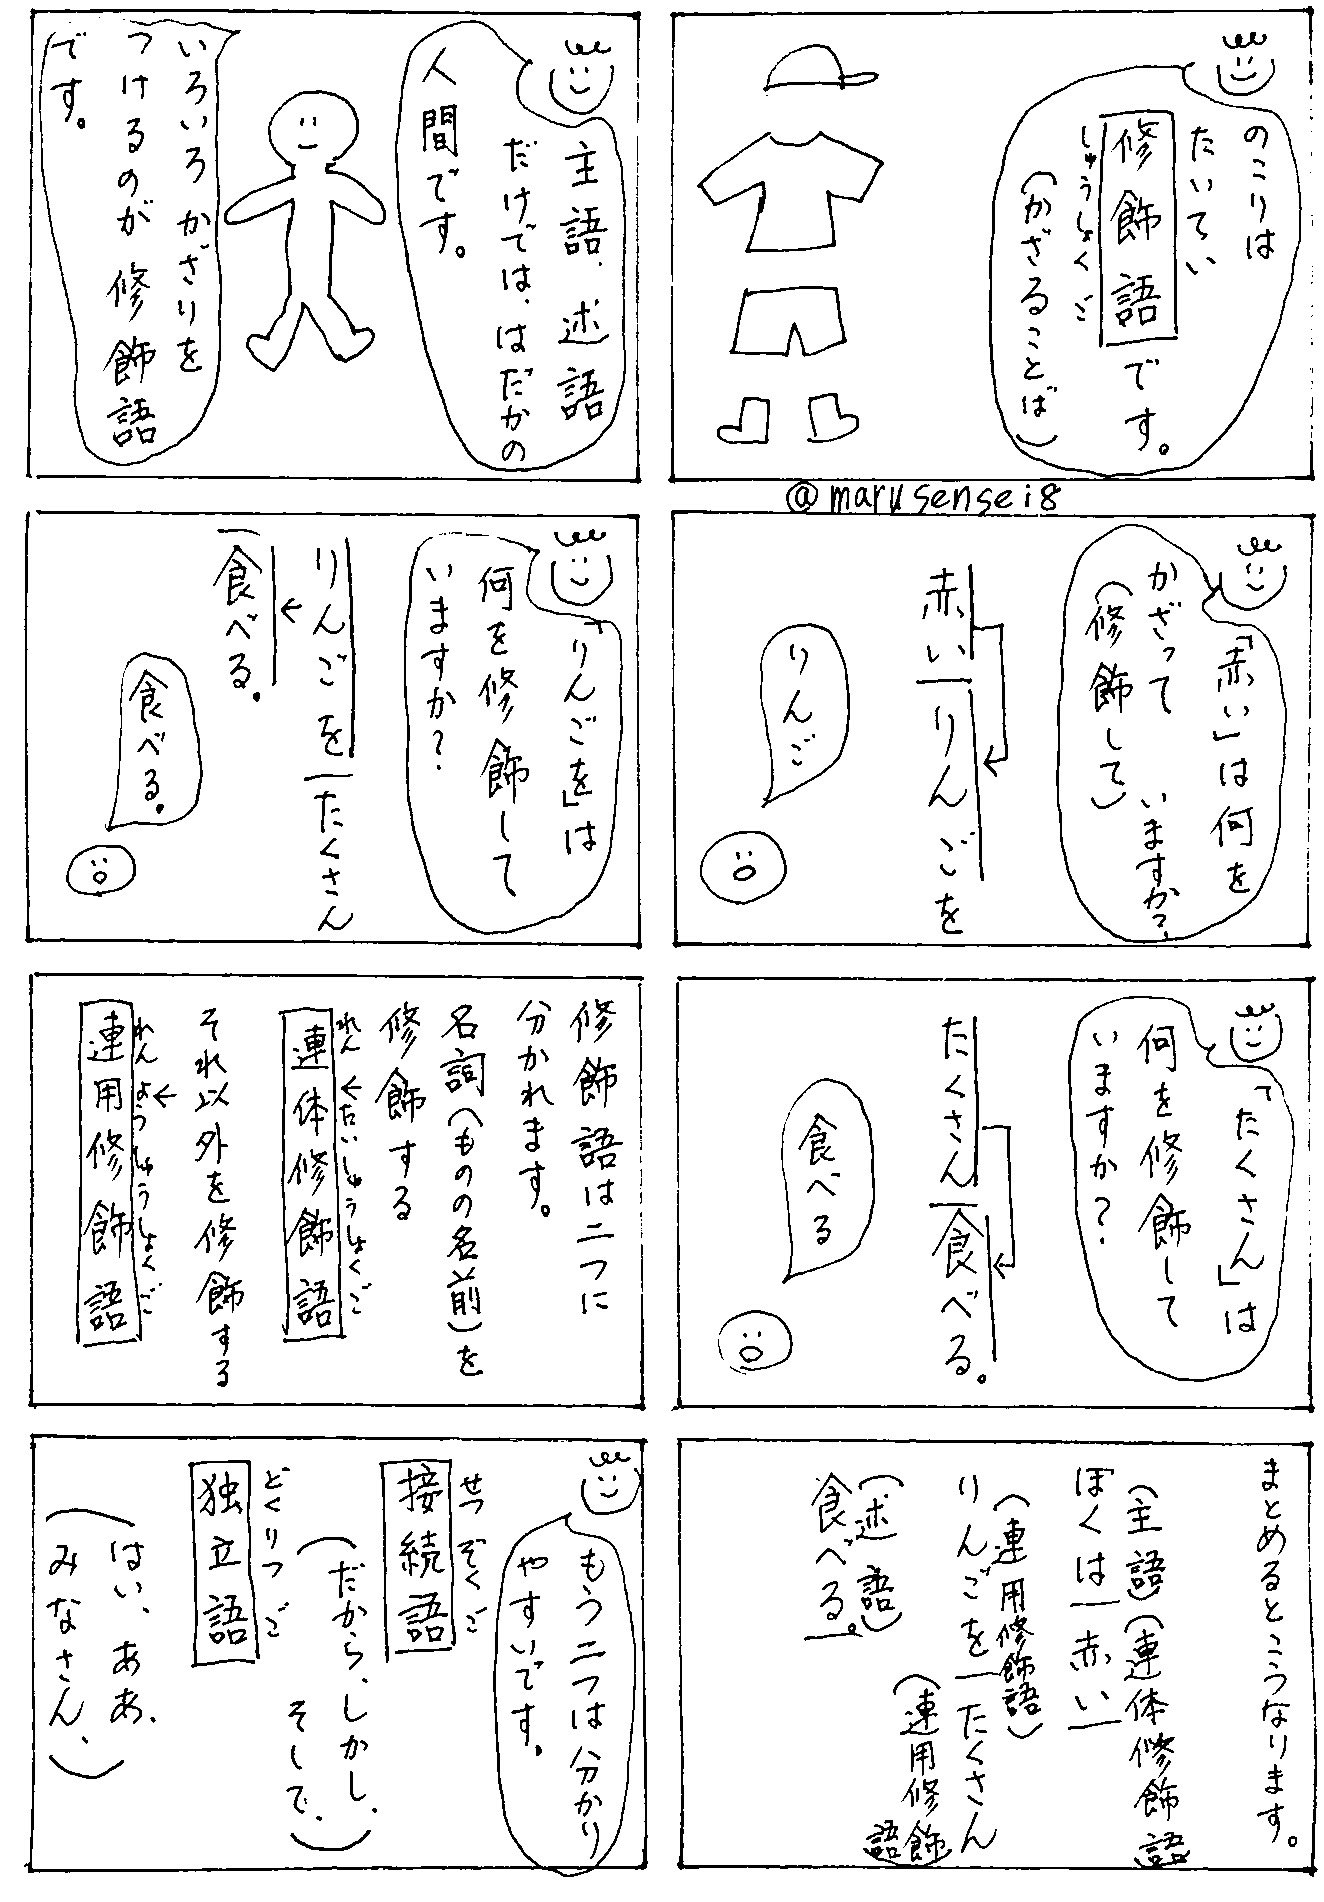 のこりは
たいてい
修飾語です。
しゅうしょくご
(かざることば)
主語、述語
だけでは、はだかの
人間です。
いろいろかざりを
つけるのが修飾語
です。
@marusensei8
「赤い」は何を
かざって
いますか?
(修飾して)
赤い|りんごを
りんご
「りんごを」は
何を修飾して
いますか?
りんごを|たくさん
食べる。
食べる。
「たくさん」は
何を修飾して
いますか?
たくさん|食べる。
食べる
修飾語は二つに
分かれます。
名詞(ものの名前)を
修飾する
れんたいしゅうしょくご
連体修飾語
それ以外を修飾する
れんようしゅうしょくご
連用修飾語
まとめるとこうなります。
(主語)(連体修飾語)
ぼくは|赤い|
(連用修飾語)
りんごを|たくさん
(連用修飾語)
(述語)
食べる。
もう二つは分かり
やすいです。
せつぞくご
接続語
(だから、しかし、
そして、)
どくりつご
独立語
(はい、ああ、
みなさん、)